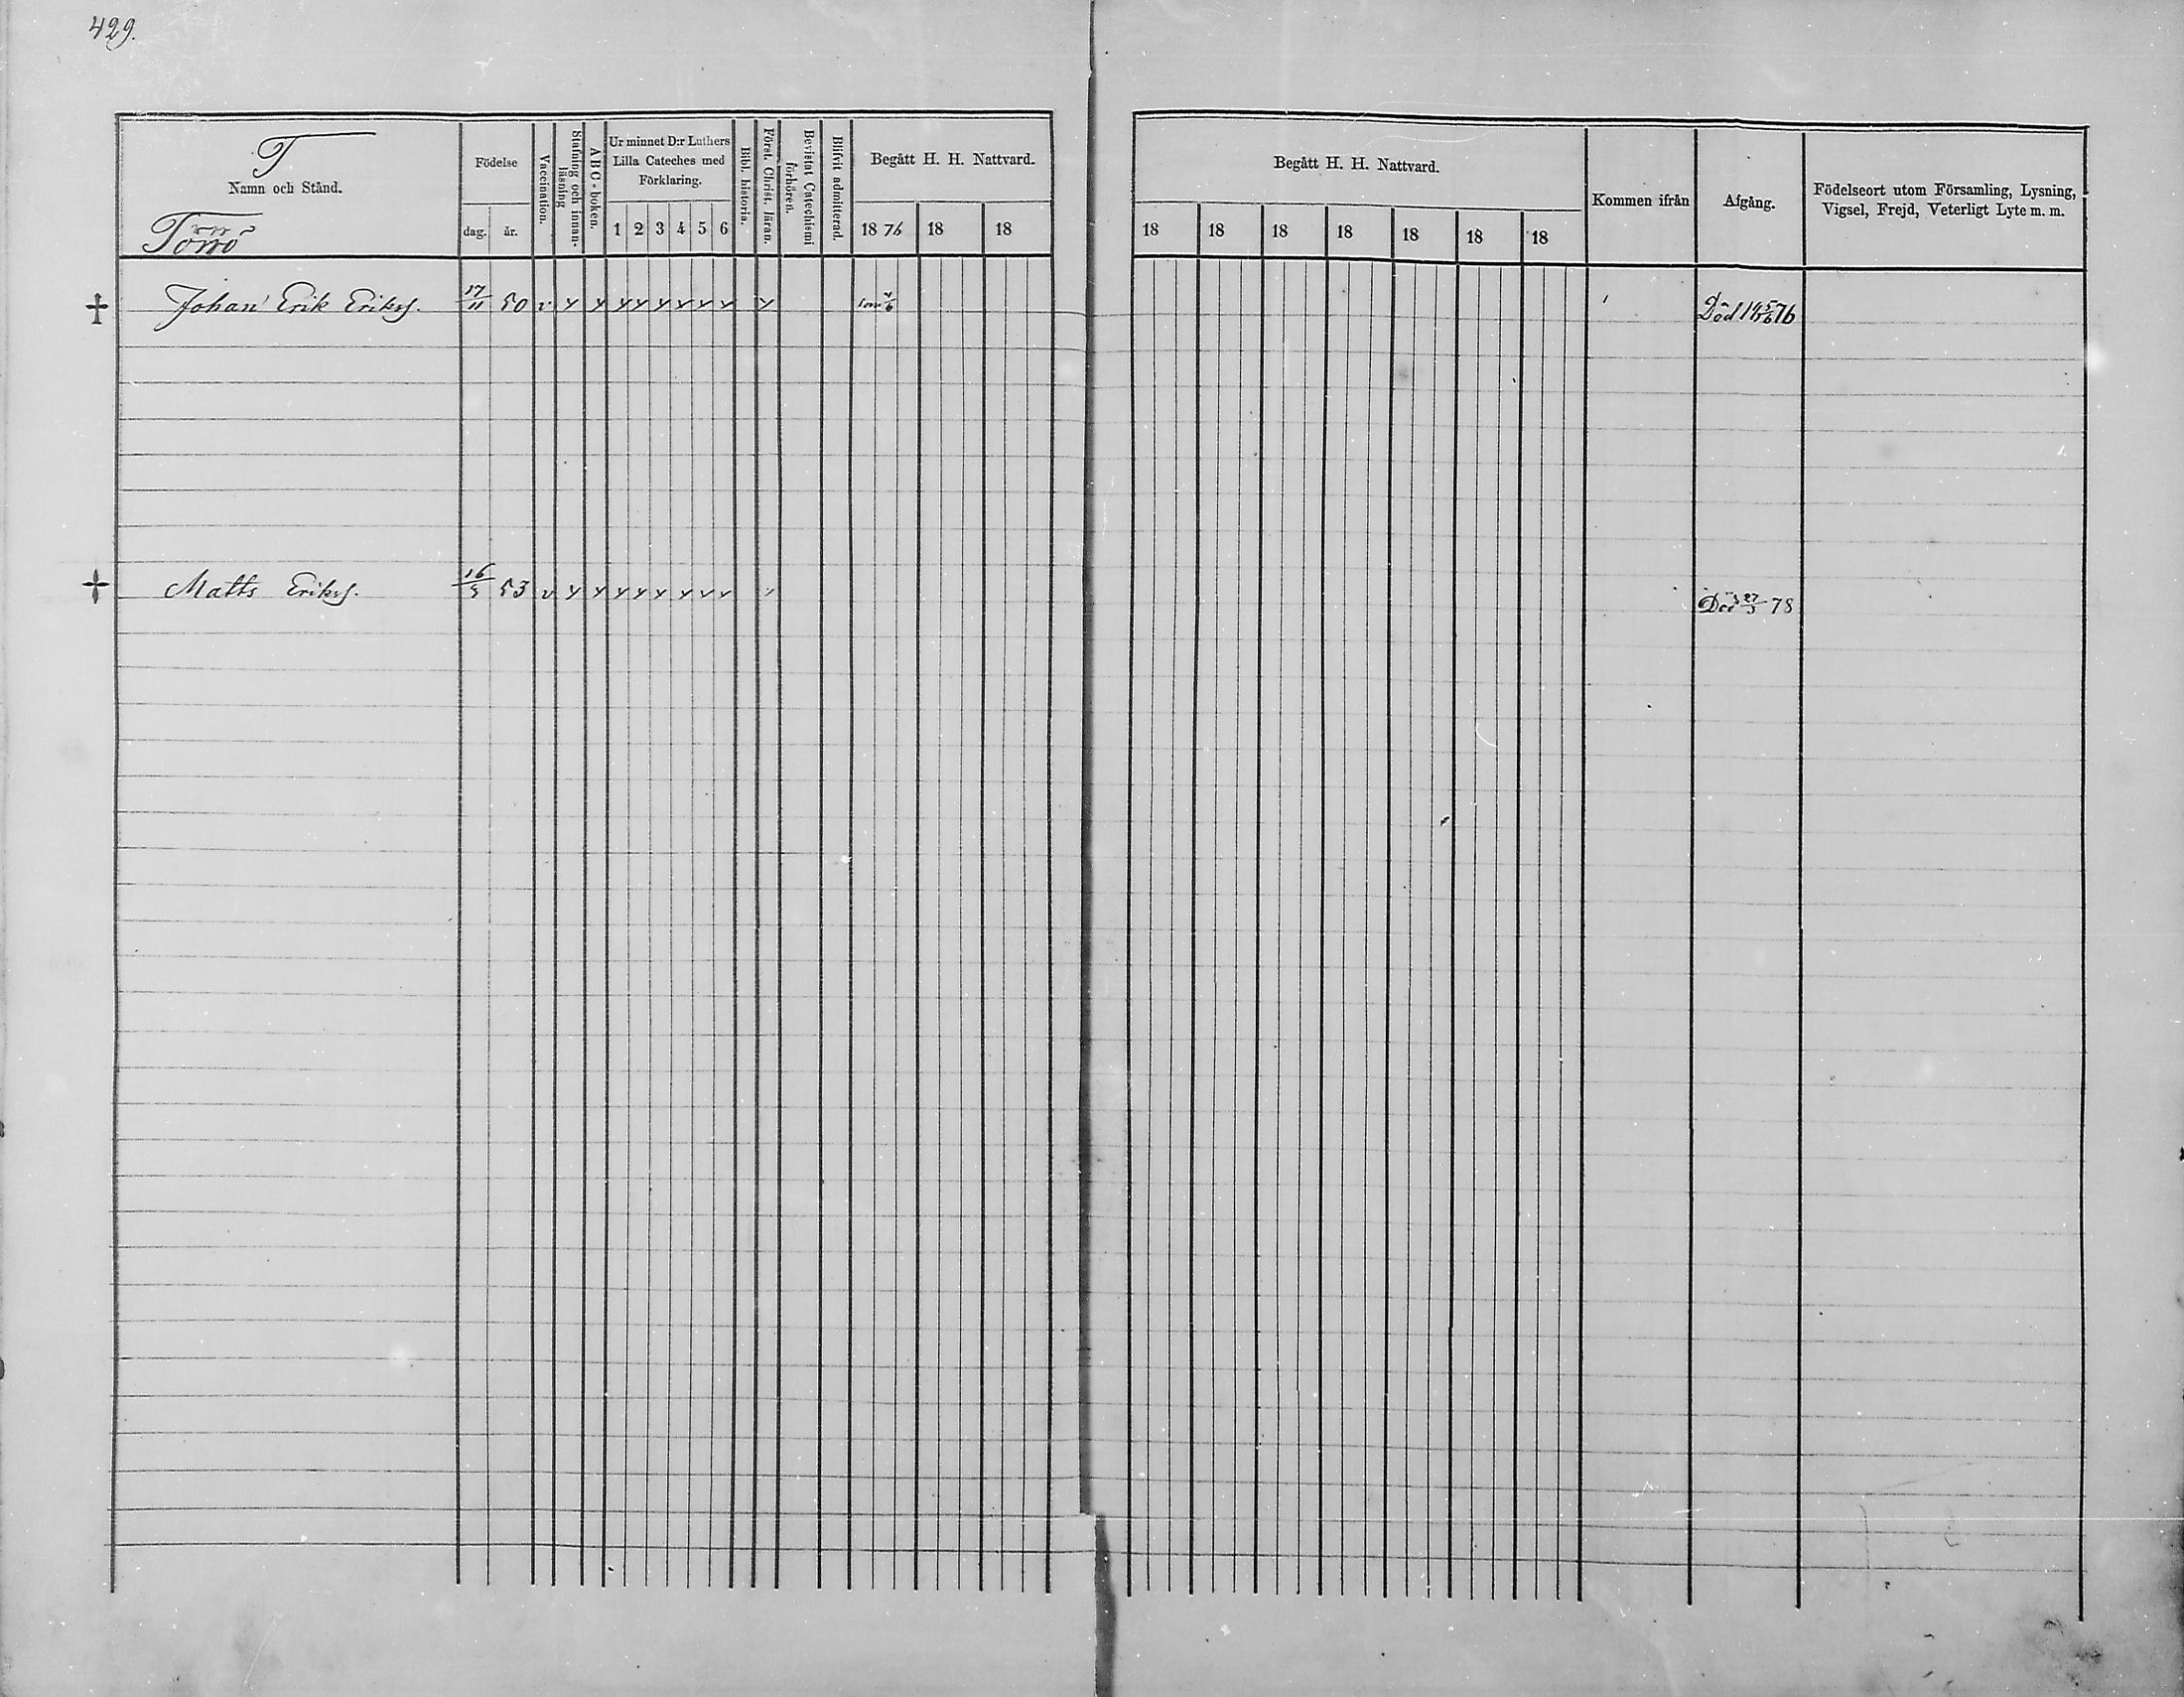 429.
T
Namn och Stånd.
Törrö
Födelse
dag.
år.
Vaccination.
Stafning och innan-
läsning
ABC-boken.
Ur minnet D:r Luthers
Lilla Cateches med
Förklaring.
1 2 3 4 5 6
Bibl. historia.
Först. Christ. läran.
Bevistat Catechismi
förhören.
Blifvit admitterad.
Begått H. H. Nattvard.
18 76 18 18
Begått H. H. Nattvard.
18 18 18 18 18 18 18
Kommen ifrån
Afgång.
Födelseort utom Församling, Lysning,
Vigsel, Frejd, Veterligt Lyte m. m.
Johan Erik Eriks. 17/11 50 v Död 76
Matts Eriks. 16/5 53 v Död 27/3 78